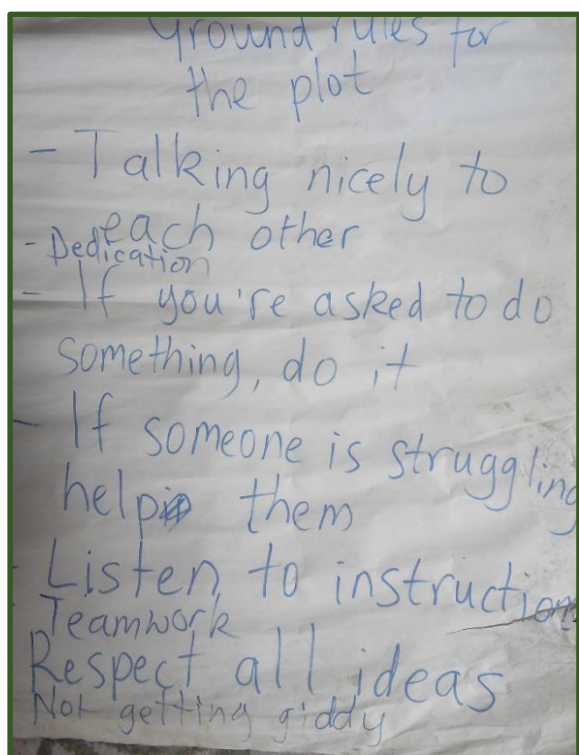 Ground rules for
the plot
- Talking nicely to
each other
- Dedication
- If you're asked to do
something, do it
- If someone is struggling
help them
- Listen to instruction
- Teamwork
Respect all ideas
- Not getting giddy